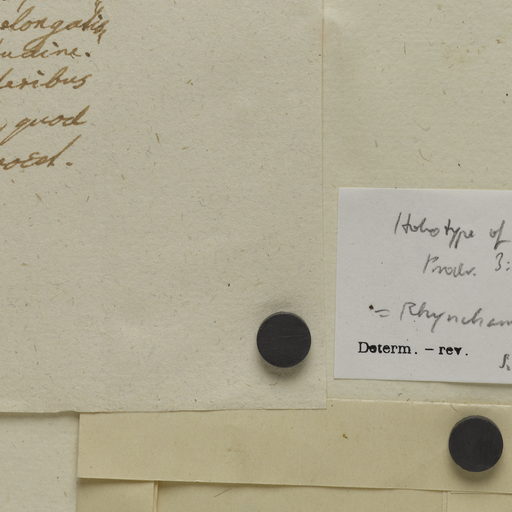 elongatis
tudine.
deribus
, quod
Holotype of
Prodr. 3:
= Rhyncham
Determ. – rev.